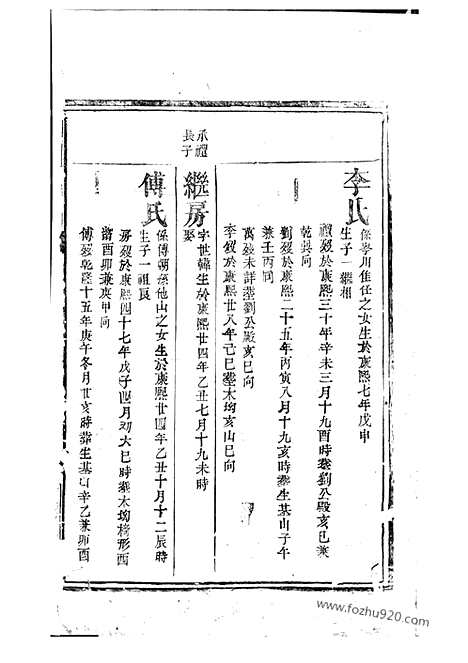 李氏
係李川隹任之女生於康熙七年戊申
生子一 繼相
禮歿於康熙三十年辛未三月十九酉時塟劉公殿亥巳兼
乾巽向
劉歿於康熙二十五年丙寅八月十九亥時塟生基山子午
兼壬丙向
萬歿未詳塟劉公殿亥巳向
李歿於康熙廿八年己巳塟木坳亥山巳向
承禮
長子
繼房
字世韓生於康熙廿四年乙丑七月十九未時
娶
傅氏
係傅朝孫他山之女生於康熙廿四年乙丑十月十二辰時
生子一祖良
房歿於康熙四十七年戊子四月初六巳時塟木坳椅形酉
山酉卯兼庚甲向
傅歿乾隆十五年庚午冬月廿亥時塟生基山辛乙兼卯酉
www.fozhu920.com